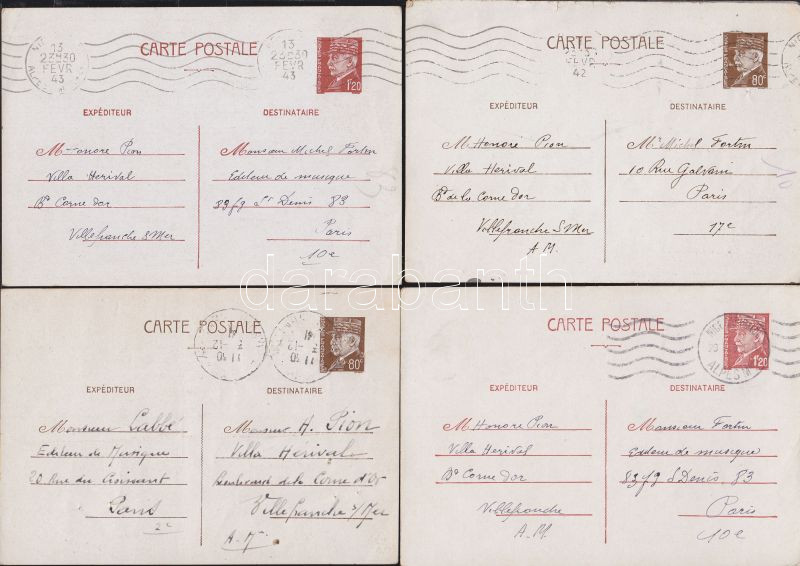 13
23H30
FEVR
43
CARTE POSTALE
13
23H30
FEVR
43
1'20
EXPÉDITEUR
DESTINATAIRE
M onore Pion
Villa Herival
Bd Corne d'or
Villefranche s Mer
Monsieur Michel Fortin
Editeur de musique
83 fg St Denis 83
Paris
10e
CARTE POSTALE
FEVR
42
80c
EXPÉDITEUR
DESTINATAIRE
M. Honoré Pion
Villa Herival
Bd de la Corne d'or
Villefranche S Mer
A.M.
Mr Michel Fortin
10 Rue Galvani
Paris
17e
10
darabanth
CARTE POSTALE
11 40
7 -12
41
11 40
7 -12
41
80c
EXPÉDITEUR
DESTINATAIRE
Monsieur Labbé
Editeur de Musique
20 Rue du Croissant
Paris
2e
Monsieur A. Pion
Villa Herival
Boulevard de la Corne d'Or
Villefranche s/Mer
A-M
CARTE POSTALE
ALPES M
1'20
EXPÉDITEUR
DESTINATAIRE
M. Honoré Pion
Villa Herival
Bd Corne d'or
Villefranche
A.M.
Monsieur Fortin
Editeur de musique
83 fg S Denis, 83
Paris
10e